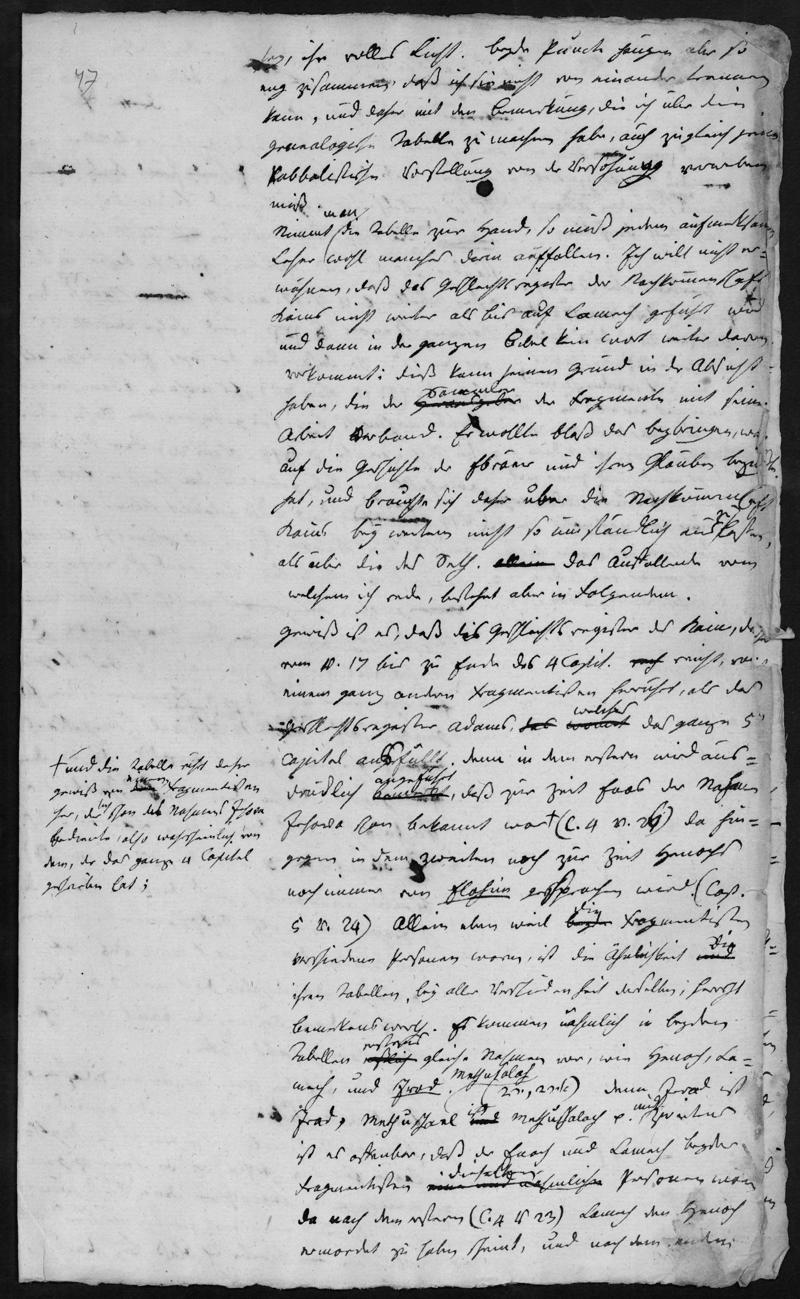 47
ihr volles Licht. beyde Puncte hängen aber so
eng zusammen, daß ich sie nicht von einander trennen
kann, und daher mit den Bemerkung, die ich über die
genealogische Tabelle zu machen habe, auch zugleich jene
kabbalistische Vorstellung von der Versöhnung verweben
muß.
Nimmt man die Tabelle zur Hand, so muß jedem aufmerksamen
Leser wohl manches darin auffallen. Ich will nicht er=
wähnen, daß das Geschlechtsregister der Nachkommenschaft
Kains nicht weiter als bis auf Lamech geführt wird
und dann in der ganzen Bibel kein Wort weiter davon
vorkommt: dieß kann seinen Grund in der Absicht
haben, die der Sammler der Fragmente mit seiner
Arbeit verband. Er wollte bloß das beybringen, was
auf die Geschichte der Ebräer und ihren Glauben Bezug
hat, und brauchte sich daher über die Nachkommenschaft
Kains bey weitem nicht so umständlich auszulassen,
als über die des Seth. allein das Auffallende von
welchem ich rede, bestehet aber in Folgendem.
Gewiß ist es, daß das Geschlechtsregister des Kain, das
vom v. 17 bis zu Ende des 4 Capit. reicht, von
einem ganz andern Fragmentisten herrührt, als das
Geschlechtsregister Adams, welches das ganze 5
Capitel ausfüllt. denn in dem erstern wird aus=
drücklich angeführt, daß zur Zeit Enos der Nahme
Jehova schon bekannt war + (C. 4 v. 26) da hin=
gegen in dem zweiten noch zur Zeit Henochs
noch immer von Elohim gesprochen wird. (Cap.
5 v. 24) Allein eben weil die Fragmentisten
verschiedene Personen waren, ist die Ähnlichkeit
ihrer Tabellen, bey aller Verschiedenheit derselben, höchst
bemerkenswerth. Es kommen nähmlich in beyden
Tabellen erstens gleiche Nahmen vor, wie Henoch, La=
mech, und Irad. Methusalah denn Irad ist
Jrad, Methusael ist Methusalach
ist es offenbar, daß der Enoch und Lamech beyder
Fragmentisten dieselben Personen waren
da nach dem erstern (C. 4 v 23) Lamech den Henoch
ermordet zu haben scheint, und nach dem andern
+ und die Tabelle rührt daher
gewiß von einem Fragmentisten
her, der sich schon des Nahmens Jehova
bediente, also wahrscheinlich von
dem, der das ganze 4 Capitel
geschrieben hat;